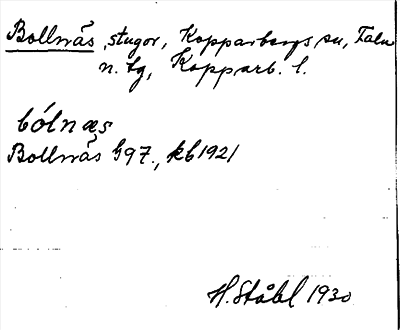 Bollnäs, stugor, Kopparbergs sn, Falu
n. tg, Kopparb. l.
bólnæs
Bollnäs G97., kb 1921
H. Ståhl 1930